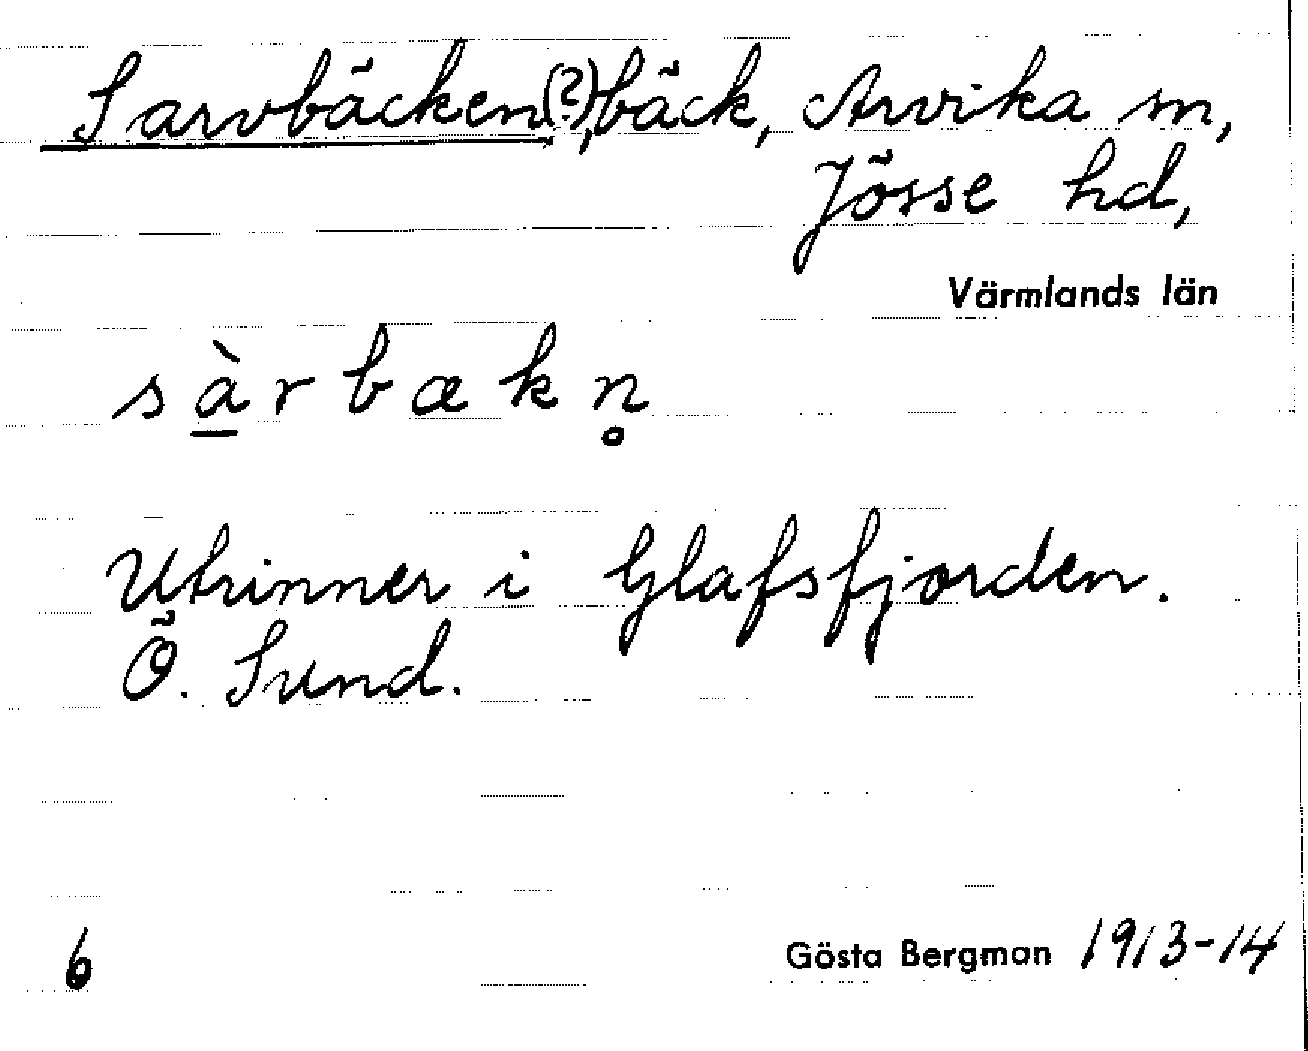 Sarvbäcken(?), bäck, Arvika sn,
Jösse hd,
Värmlands län
sà̱rbækn̥
Utrinner i Glafsfjorden.
Ö. Sund.
6
Gösta Bergman 1913-14